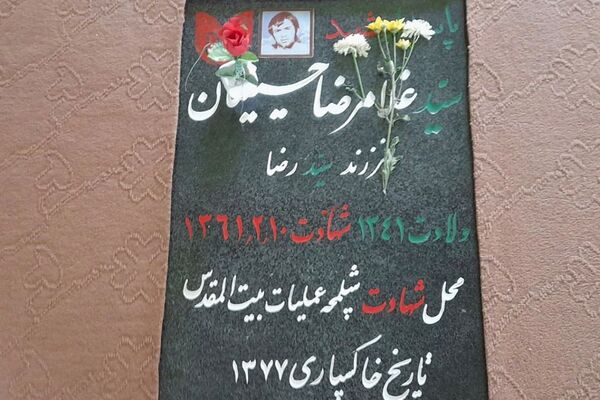 شهید
سید غلامرضا حسینیان
فرزند سید رضا
ولادت ۱۳۴۱ شهادت ۱۳۶۱٫۲٫۱۰
محل شهادت شلمچه عملیات بیت المقدس
تاریخ خاکسپاری ۱۳۷۷